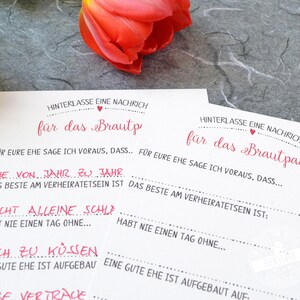 HINTERLASSE EINE NACHRICH
für das Brautp
FÜR EURE EHE SAGE ICH VORAUS, DASS...
VON JAHR ZU JAHR
DAS BESTE AM VERHEIRATETSEIN IST:
CHT ALLEINE SCHL
HABT NIE EINEN TAG OHNE...
CH ZU KÜSSEN
GUTE EHE IST AUFGEBAUT
VERTRAUE
HINTERLASSE EINE NACHRICH
für das Brautpa
FÜR EURE EHE SAGE ICH VORAUS, DASS...
DAS BESTE AM VERHEIRATETSEIN IST:
HABT NIE EINEN TAG OHNE...
EINE GUTE EHE IST AUFGEBAUT AUF: